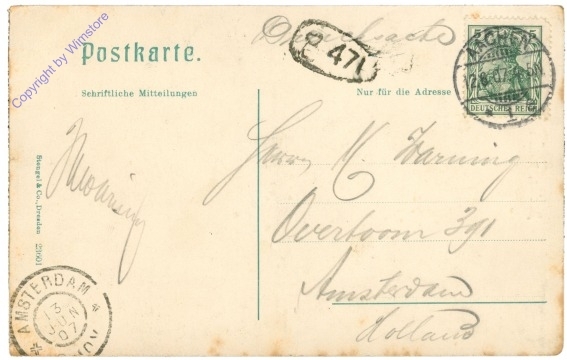 Drucksache
Postkarte.
Schriftliche Mitteilungen
Nur für die Adresse
471
AACHEN
5
DEUTSCHES REICH
1
Herrn K. Warning
Overtoom 391
Amsterdam
Holland
Stengel & Co., Dresden 23601
AMSTERDAM
3 JUN 07
Copyright by Wimstore